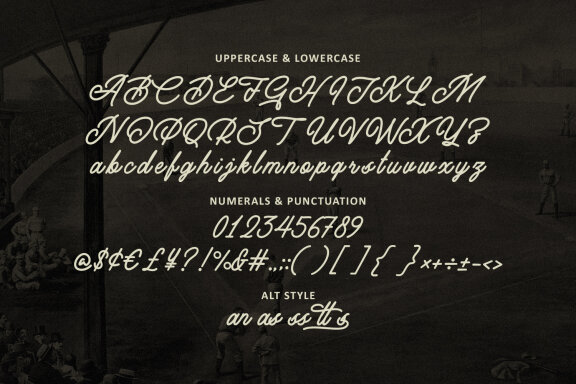 UPPERCASE & LOWERCASE
ABCDEFGHIJKLM
NOPQRSTUVWXYZ
abcdefghijklmnopqrstuvwxyz
NUMERALS & PUNCTUATION
0123456789
@$¢€£¥?!%&#.,;:()[]{}×+÷±-<>
ALT STYLE
an as ss tt s